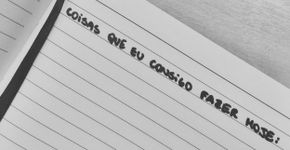 COISAS QUE EU CONSIGO FAZER HOJE: